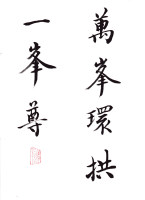 萬峯環拱
一峯尊